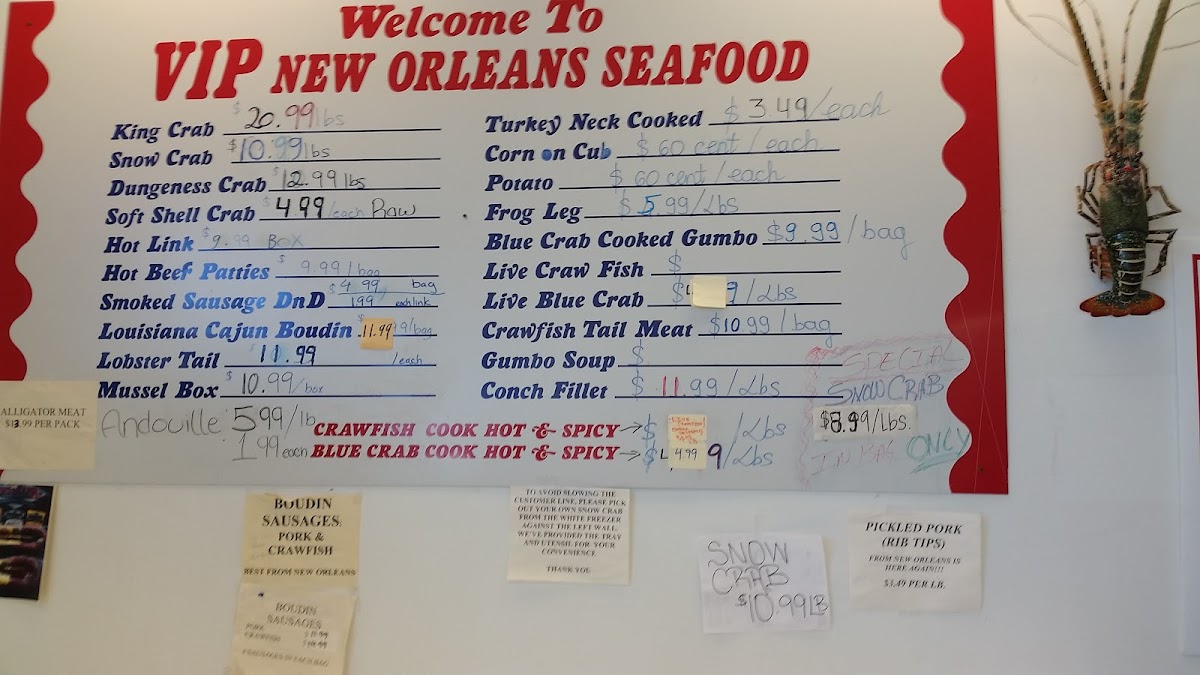 Welcome To
VIP NEW ORLEANS SEAFOOD
King Crab $20.99 lbs
Snow Crab $10.99 lbs
Dungeness Crab $12.99 lbs
Soft Shell Crab $4.99 /each Raw
Hot Link $9.99 BOX
Hot Beef Patties $9.99/bag
Smoked Sausage DnD $4.99 bag
1.99 each link
Louisiana Cajun Boudin 11.99 9/bag
Lobster Tail 11.99 /each
Mussel Box $10.99/box
Andouille 5.99/lb
1.99 each
Turkey Neck Cooked $3.49/each
Corn on Cub $60 cent/each
Potato $60 cent/each
Frog Leg $5.99/Lbs
Blue Crab Cooked Gumbo $9.99/bag
Live Craw Fish $
Live Blue Crab $ 9/Lbs
Crawfish Tail Meat $10.99/bag
Gumbo Soup $
Conch Fillet $11.99/Lbs
CRAWFISH COOK HOT & SPICY → $ /Lbs
BLUE CRAB COOK HOT & SPICY → $ 4.99 9/Lbs
SPECIAL
SNOW CRAB
$8.99/lbs.
IN BAG ONLY
ALLIGATOR MEAT
$13.99 PER PACK
BOUDIN
SAUSAGES:
PORK &
CRAWFISH
BEST FROM NEW ORLEANS
BOUDIN
SAUSAGES
PORK
CRAWFISH
TO AVOID SLOWING THE
CUSTOMER LINE, PLEASE PICK
OUT YOUR OWN SNOW CRAB
FROM THE WHITE FREEZER
AGAINST THE LEFT WALL.
WE'VE PROVIDED THE TRAY
AND UTENSIL FOR YOUR
CONVENIENCE
THANK YOU
SNOW
CRAB
$10.99 LB
PICKLED PORK
(RIB TIPS)
FROM NEW ORLEANS IS
HERE AGAIN!!!!
$3.49 PER LB.